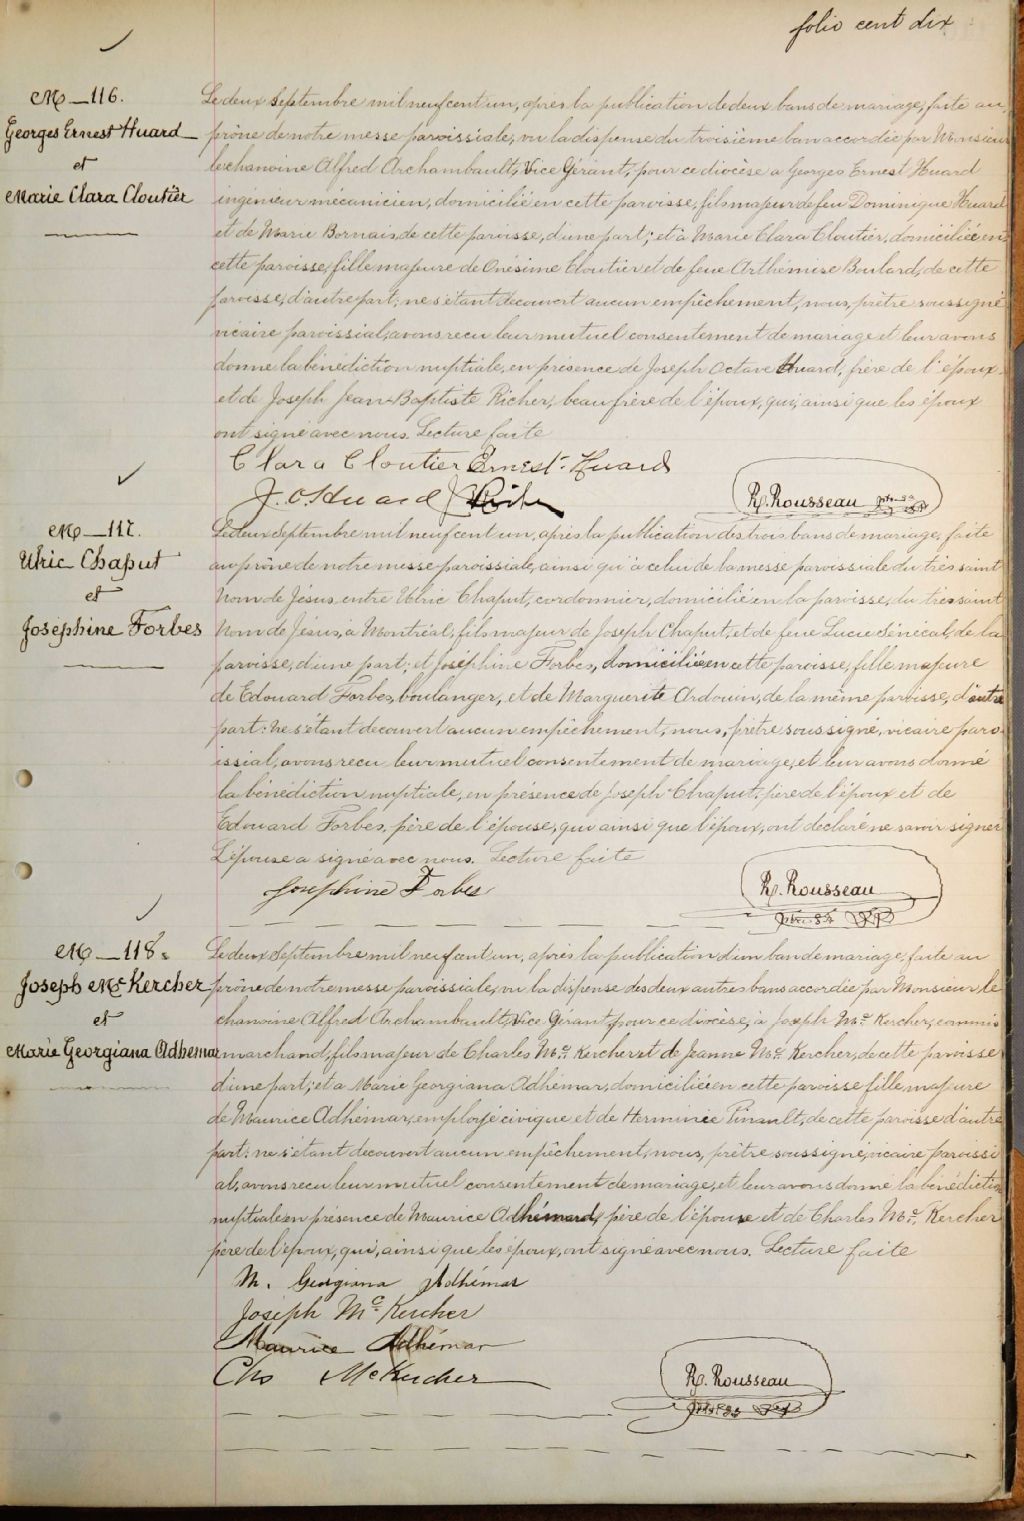 folio cent dix
M_116.
Georges Ernest Huard
et
Marie Clara Cloutier
Le deux Septembre mil neuf cent un, après la publication de deux bans de mariage, faite au
prône de notre messe paroissiale, vu la dispense du troisième ban accordée par Monsieur
le chanoine Alfred Archambault, Vice Gérant, pour ce diocèse a Georges Ernest Huard
ingénieur mécanicien, domicilié en cette paroisse, fils majeur de feu Dominique Huard
et de Marie Bornais, de cette paroisse, d'une part; et à Marie Clara Cloutier, domiciliée en
cette paroisse, fille majeure de Onésime Cloutier et de feue Arthémise Boulard, de cette
paroisse, d'autre part; ne s'étant decouvert aucun empêchement, nous, prêtre soussigné
vicaire paroissial, avons recu leur mutuel consentement de mariage et leur avons
donne la bénédiction nuptiale, en présence de Joseph Octave Huard, frère de l'époux
et de Joseph Jean-Baptiste Richer, beau frère de l'époux, qui, ainsi que les époux
ont signé avec nous. Lecture faite
Clara Cloutier Ernest Huard
J. O. Huard J Richer
R. Rousseau
M_117.
Ulric Chaput
et
Joséphine Forbes
Le deux Septembre mil neuf cent un, après la publication des trois bans de mariage, faite
au prône de notre messe paroissiale, ainsi qu'à celui de la messe paroissiale du très saint
Nom de Jésus, entre Ulric Chaput, cordonnier, domicilié en la paroisse, du très saint
Nom de Jésus, à Montréal, fils majeur de Joseph Chaput, et de feue Lucie Sénécal, de la
paroisse, d'une part; et Joséphine Forbes, domiciliée en cette paroisse, fille majeure
de Edouard Forbes, boulanger, et de Marguerite Ardouin, de la même paroisse, d'autre
part: ne s'étant decouvert aucun empêchement, nous, prêtre soussigné, vicaire paro
issial, avons recu leur mutuel consentement de mariage, et leur avons donné
la bénédiction nuptiale, en présence de Joseph Chaput, père de l'époux et de
Edouard Forbes, père de l'épouse, qui ainsi que l'époux, ont declaré ne savoir signer
L'épouse a signé avec nous. Lecture faite
Josephine Forbes
R. Rousseau
M_118.
Joseph Mc Kercher
et
Marie Georgiana Adhemar
Le deux Septembre mil neuf cent un, après la publication d'un ban de mariage, faite au
prône de notre messe paroissiale, vu la dispense des deux autres bans accordée par Monsieur le
chanoine Alfred Archambault, Vice Gérant, pour ce diocèse, à Joseph Mc Kercher, commis
marchand, fils majeur de Charles Mc Kercher et de Jeanne Mc Kercher, de cette paroisse
d'une part; et a Marie Georgiana Adhémar, domiciliée en cette paroisse fille majeure
de Maurice Adhémar, employé civique et de Herminie Pinault, de cette paroisse d'autre
part: ne s'étant decouvert aucun empêchement, nous, prêtre soussigné, vicaire paroissi
al, avons recu leur mutuel consentement de mariage, et leur avons donné la bénédiction
nuptiale en présence de Maurice Adhémard, père de l'épouse et de Charles Mc Kercher
père de l'époux, qui, ainsi que les époux, ont signé avec nous. Lecture faite
M. Georgiana Adhémar
Joseph Mc Kercher
Maurice Adhémar
Chs McKercher
R. Rousseau